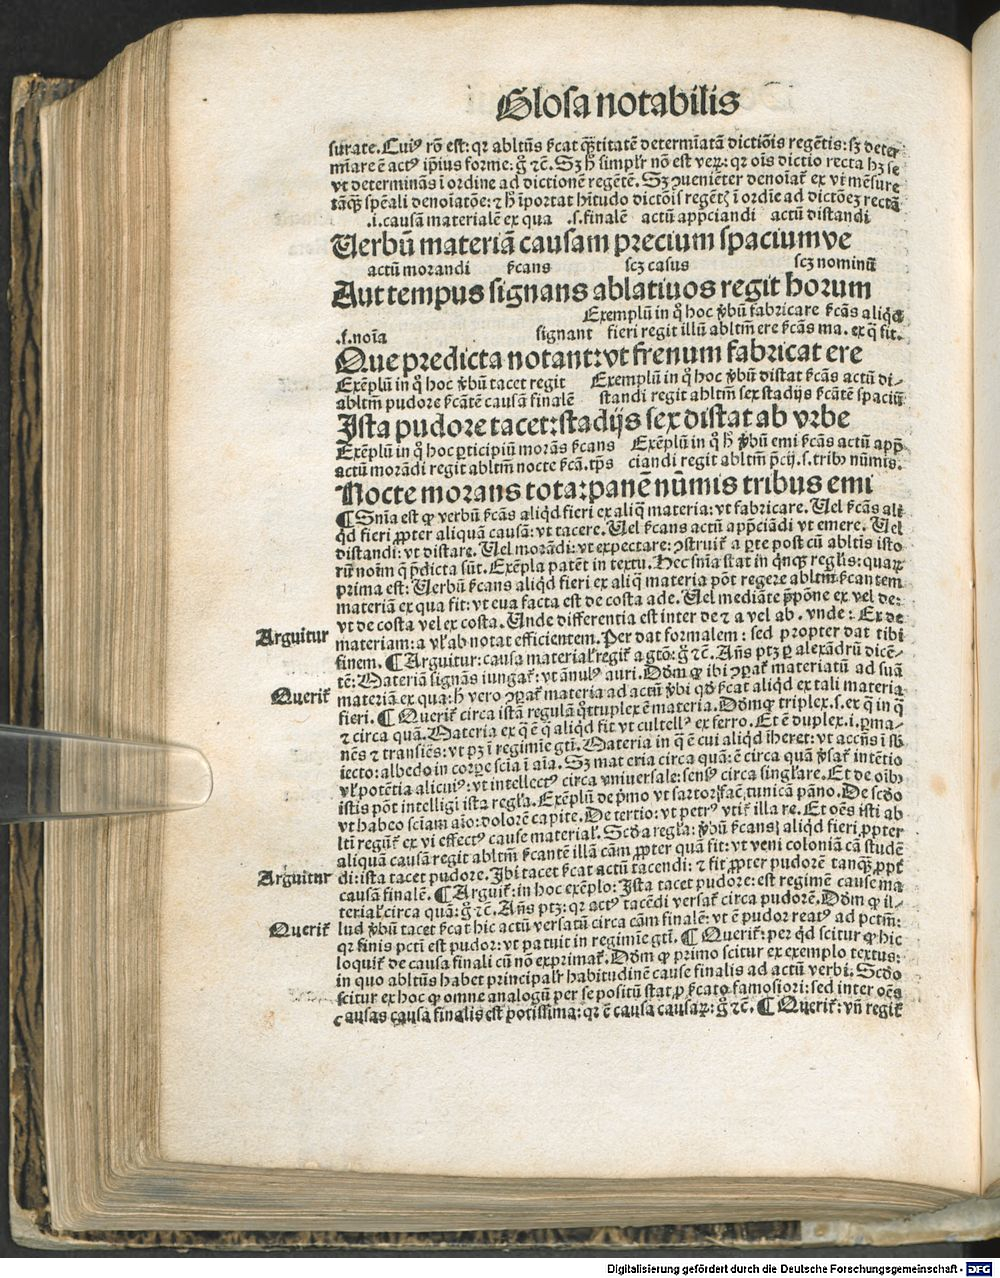 Glosa notabilis
surate. Cuiꝰ rō est: qꝛ abltūs ſcat quātitatē determinatā dictiōis regētis: sꝫ deter
mīare ē actꝰ ip̄ius forme: g̊ ⁊c̄. Sꝫ h̄ simplr̄ nō est veꝝ: qꝛ oīs dictio recta hꝫ se
vt determinās ī ordine ad dictionē regētē. Sꝫ ꝯueniēter denoīat᷑ ex vi mēsure
tāꝙ̄ sp̄eali denoīatōe: ⁊ h̄ īportat hītudo dictōis regētꝭ ī ordīe ad dictōeꝫ rectā
.i. causā materialē ex qua .s. finalē actū app̄ciandi actū distandi
Uerbū materiā causam precium spaciumve
actū morandi ſcans scꝫ casus scꝫ nominū
Aut tempus signans ablativos regit horum
Exemplū in q̊ hoc v̄bū fabricare ſcās aliqd
.s. noīa signant fieri regit illū abltm̄ ere ſcās ma. ex q̄ fit.
Que predicta notant: vt frenum fabricat ere
Exēplū in q̊ hoc v̄bū tacet regit Exemplū in q̊ hoc v̄bū distat ſcās actū di-
abltm̄ pudore ſcātē causā finalē standi regit abltm̄ sex stadijs ſcātē spaciū
Ista pudore tacet: stadijs sex distat ab vrbe
Exēplū in q̊ hoc ꝑticipiū morās ſcans Exēplū in q̊ h̄ v̄bū emi ſcās actū app̄
actū morādi regit abltm̄ nocte ſcā. tp̄s ciandi regit abltm̄ p̄cij. s. tribꝰ nūmis.
Nocte morans tota: panē nūmis tribus emi
¶ Snīa est ꝙ verbū ſcās aliqd fieri ex aliq̄ materia: vt fabricare. Uel ſcās ali
qd fieri ꝓpter aliquā causā: vt tacere. Uel ſcans actū app̄ciādi vt emere. Uel
distandi: vt distare. Uel morādi: vt expectare: ꝯstruit᷑ a ꝑte post cū abltīs isto
rū noīm q̄ p̄dicta sūt. Exēpla patēt in textu. Hec snīa stat in qnꝙ reglis: quaꝝ
prima est: Uerbū ſcans aliqd fieri ex aliq̄ materia pōt regere abltm̄ ſcantem
materiā ex qua fit: vt eua facta est de costa ade. Uel mediāte p̄pōne ex vel de:
vt de costa vel ex costa. Unde differentia est inter de ⁊ a vel ab. vnde: Ex de
Arguitur materiam: a vl̓ ab notat efficientem. Per dat formalem: sed propter dat tibi
finem. ¶ Arguitur: causa material̓ regit᷑ a gtō: g̊ ⁊c̄. Añs ptꝫ ꝑ alexādrū dicē-
tē: Materiā signās iungat᷑: vt ānulꝰ auri. Dōm ꝙ ibi ꝯꝑat᷑ materiatū ad suā
Querit᷑ materiā ex qua: h̄ vero ꝯꝑat᷑ materia ad actū v̄bi qd̓ ſcat aliqd ex tali materia
fieri. ¶ Querit᷑ circa istā regulā q̊tuplex ē materia. Dōm ꝙ triplex. s. ex q̄ in q̄
⁊ circa quā. Materia ex q̄ ē q̄ aliqd fit vt cultellꝰ ex ferro. Et ē duplex. i. ꝑma-
nēs ⁊ transiēs: vt pꝫ ī regimīe gtī. Materia in q̄ ē cui aliqd īheret: vt accñs ī sb̄
iecto: albedo in corpꝑe scīa ī aīa. Sꝫ materia circa quā: ē circa quā v̄sat᷑ intētio
vl̓ potētia alicuiꝰ: vt intellectꝰ circa vniuersale: sensꝰ circa singl̓are. Et de oībꝰ
istis pōt intelligi ista regl̓a. Exēplū de p̄mo vt sartor facit tunicā pāno. De scd̓o
vt habeo scīam aīo: dolorē capite. De tertio: vt petrꝰ vtit᷑ illa re. Et oēs isti ab
ltī regūt᷑ ex vi effectꝰ cause material̓. Scd̓a regl̓a: v̄bū ſcans aliqd fieri ꝓpter
aliquā causā regit abltm̄ ſcantē illā cām ꝓpter quā fit: vt veni coloniā cā studē
Arguitur di: ista tacet pudore. Ibi tacet ſcat actū tacendi: ⁊ fit ꝓpter pudorē tanꝙ̄ ꝓpt᷑
causā finalē. ¶ Arguit᷑: in hoc exēplo: Ista tacet pudore: est regimē cause ma
terial̓ circa quā: g̊ ⁊c̄. Añs ptꝫ: qꝛ actꝰ tacēdi versat᷑ circa pudorē. Dōm ꝙ il-
Querit᷑ lud v̄bū tacet ſcat hic actū versatū circa cām finalē: vt ē pudor reatꝰ ad pctm̄:
qꝛ finis pcti est pudor: vt patuit in regimīe gtī. ¶ Querit᷑: per qd scitur ꝙ hic
loquit᷑ de causa finali cū nō exprimat᷑. Dōm ꝙ primo scitur ex exemplo textus:
in quo abltūs habet principalr̄ habitudinē cause finalis ad actū verbi. Scd̓o
scitur ex hoc ꝙ omne analogū per se positū stat ꝓ ſcato famosiori: sed inter oēs
causas causa finalis est potissima: qꝛ ē causa causaꝝ: g̊ ⁊c̄. ¶ Querit᷑: vñ regit᷑
Digitalisierung gefördert durch die Deutsche Forschungsgemeinschaft - DFG